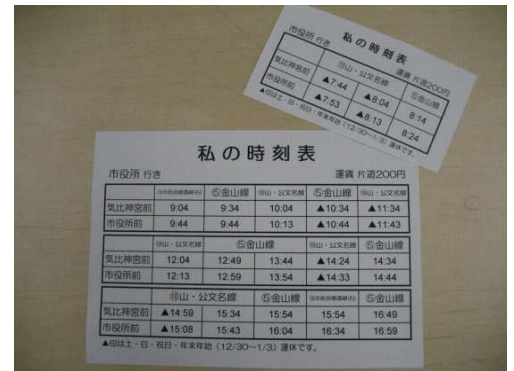 私の時刻表
市役所 行き 運賃 片道200円
⑩山・公文名線 ⑤金山線
気比神宮前 ▲7:44 ▲8:04 8:14
市役所前 ▲7:53 ▲8:13 8:24
▲印は土・日・祝日・年末年始(12/30~1/3)運休です。
私の時刻表
市役所 行き 運賃 片道200円
⑤金山線 ⑩山・公文名線 ⑤金山線 ⑩山・公文名線
気比神宮前 9:04 9:34 10:04 ▲10:34 ▲11:34
市役所前 9:44 9:44 10:13 ▲10:44 ▲11:43
⑩山・公文名線 ⑤金山線 ⑩山・公文名線 ⑤金山線
気比神宮前 12:04 12:49 13:44 ▲14:24 14:34
市役所前 12:13 12:59 13:54 ▲14:33 14:44
⑩山・公文名線 ⑤金山線 ⑤金山線
気比神宮前 ▲14:59 15:34 15:54 15:54 16:49
市役所前 ▲15:08 15:43 16:04 16:34 16:59
▲印は土・日・祝日・年末年始(12/30~1/3)運休です。